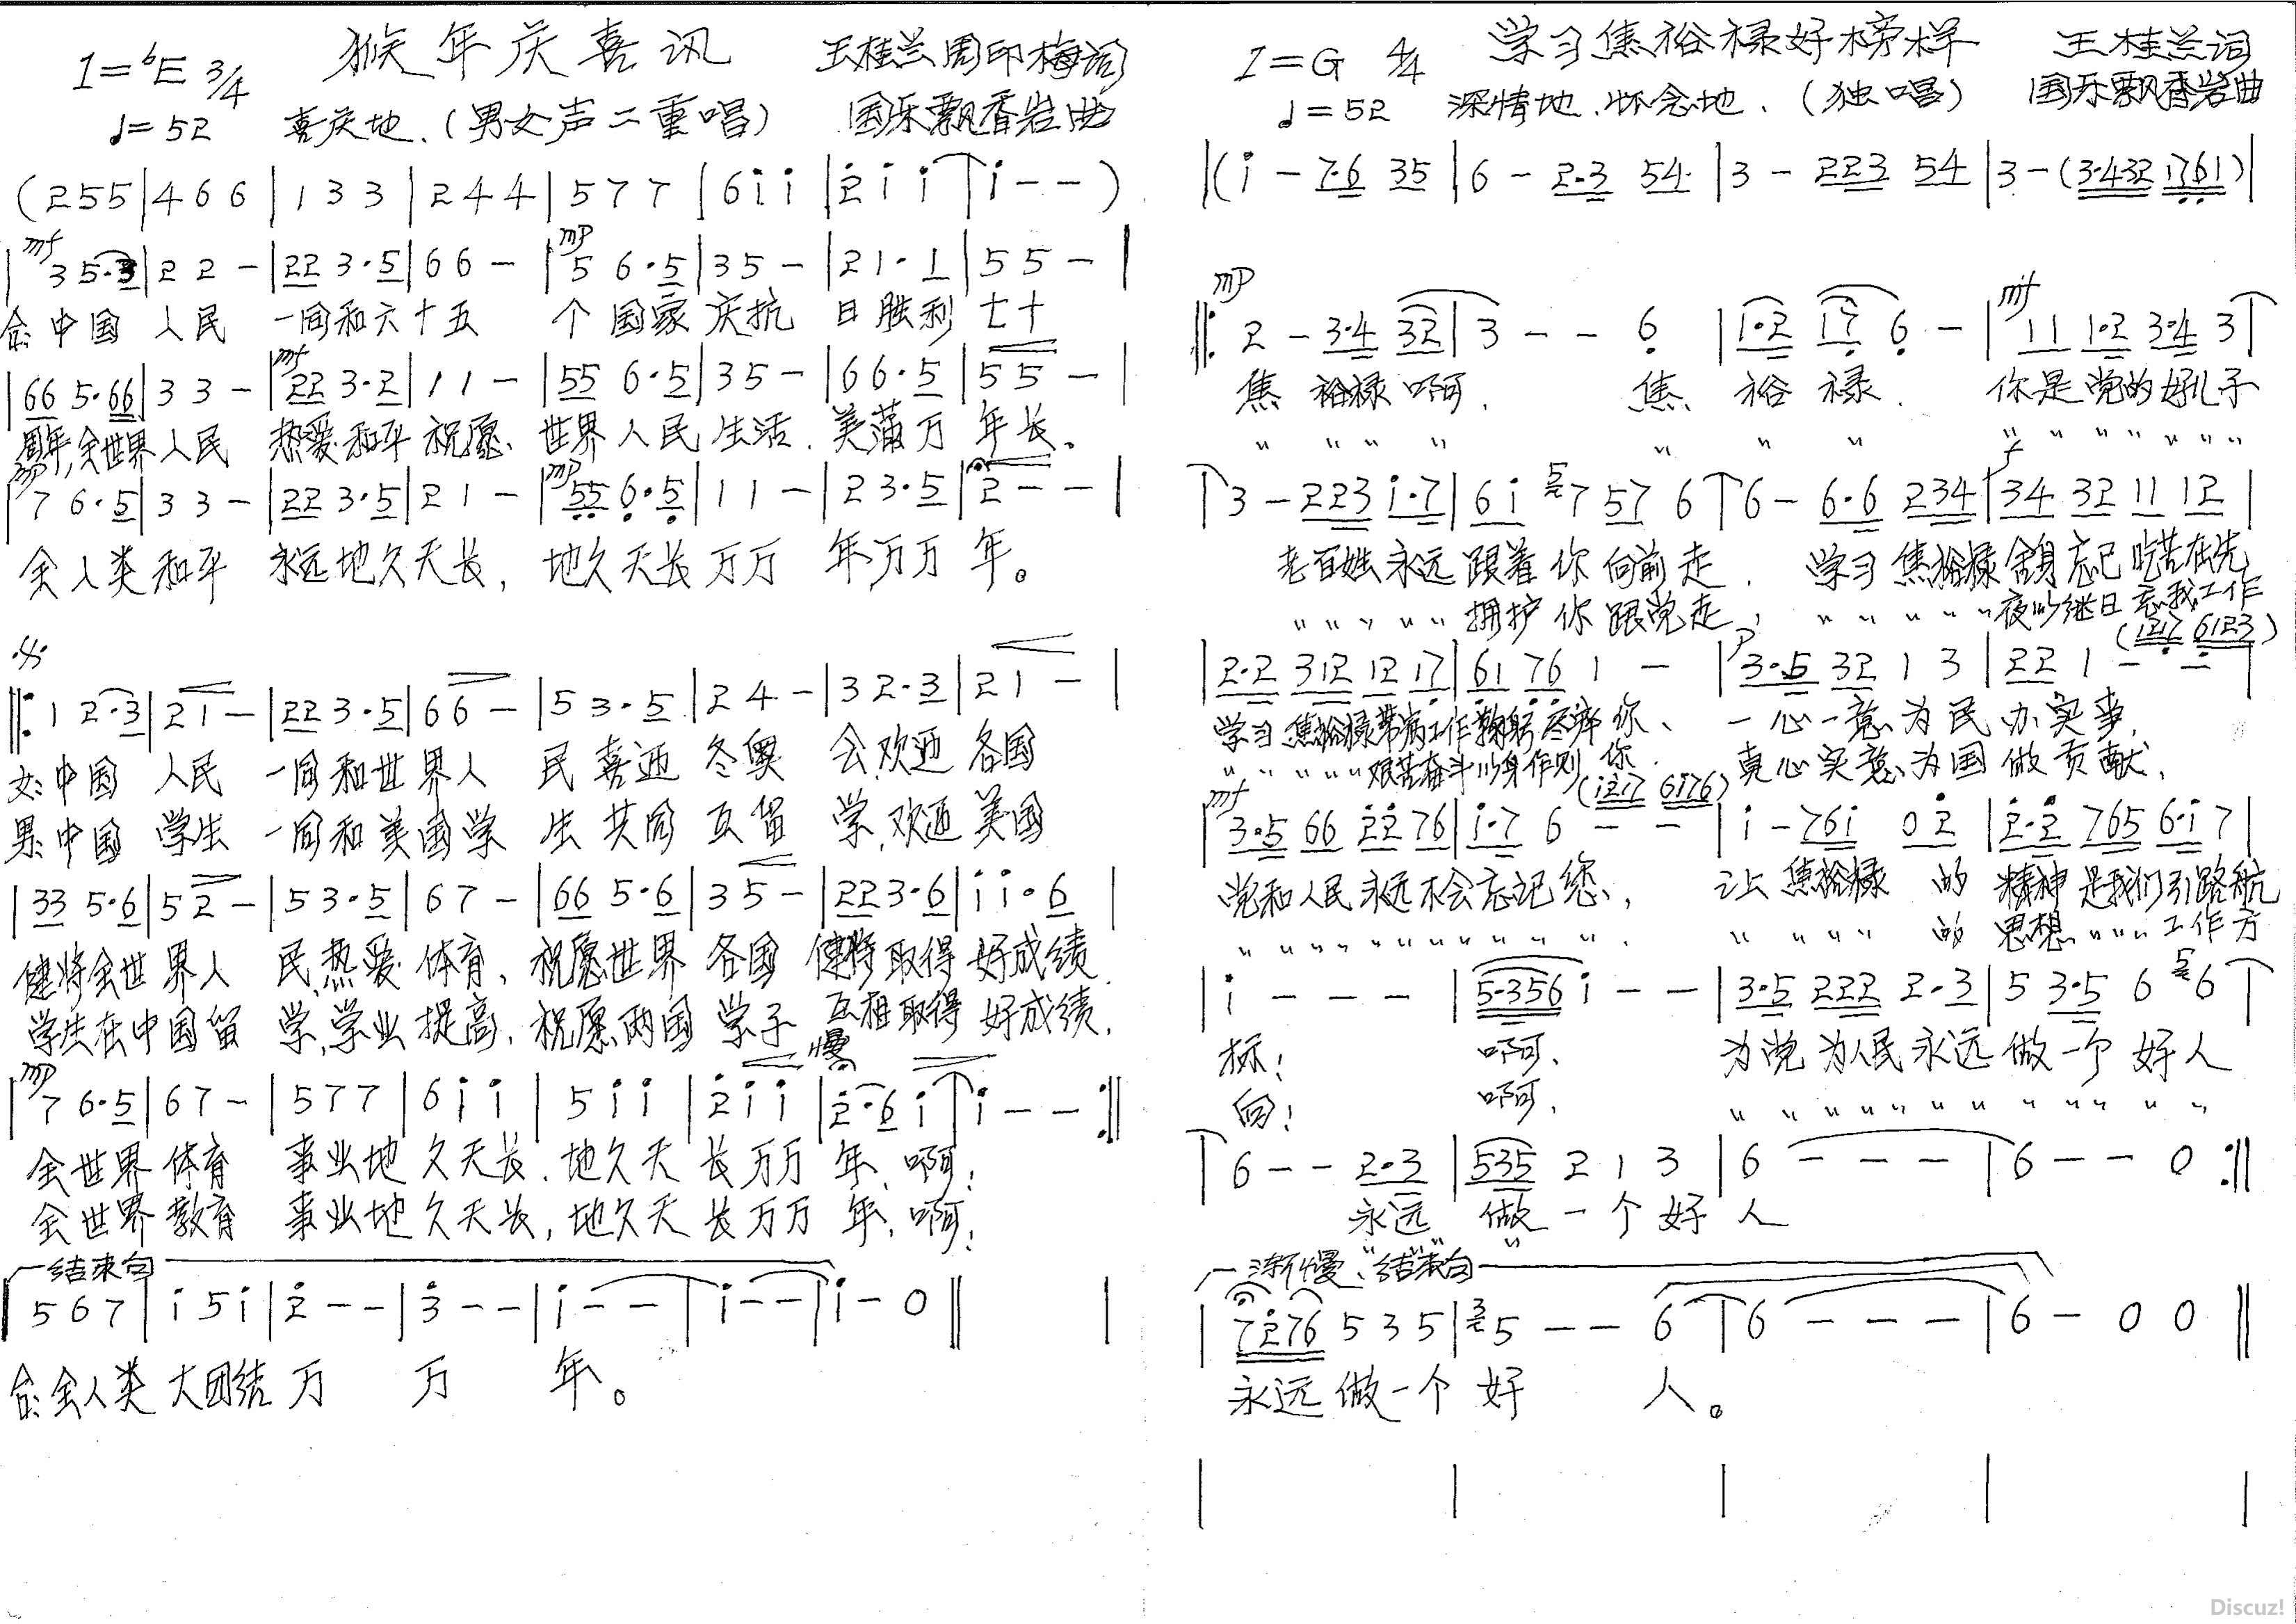 猴年庆喜讯
1=♭E 3/4
王桂兰周印梅词
♩=52 喜庆地.(男女声二重唱)
国乐飘香岩曲
(255|466|133|244|577|6i̇i̇|2̇i̇i̇|i̇--)
mf mp
|35·3|22-|223·5|66-|56·5|35-|21·1|55-|
合:中国 人民 一同和六十五 个国家 庆抗 日胜利 七十
mf
|665·66|33-|223·2|11-|556·5|35-|66·5|55-|
周年,全世界人民 热爱和平祝愿、世界人民生活.美满万年长。
mp mp
|76·5|33-|223·5|21-|5̣5̣6̣·5̣|11-|23·5|2--|
全人类和平 永远地久天长, 地久天长万万 年,万万年。
‖:12·3|21-|223·5|66-|53·5|24-|32·3|21-|
女:中国 人民 一同和世界人 民喜迎 冬奥 会,欢迎各国
男:中国 学生 一同和美国学 生共同 互留 学,欢迎美国
|335·6|52-|53·5|67-|665·6|35-|223·6|i̇i̇·6|
健将全世界人 民,热爱体育、祝愿世界各国 健将取得好成绩.
学生在中国留 学,学业提高.祝愿两国学子 互相取得好成绩.
mp 慢
|76·5|67-|577|6i̇i̇|5i̇i̇|2̇i̇i̇|2̇·6i̇|i̇--:‖
全世界体育 事业地久天长.地久天长万万年,啊;
全世界教育 事业地久天长,地久天长万万年,啊;
结束句
567|i̇5i̇|2̇--|3̇--|i̇--|i̇--|i̇-0‖
合:全人类大团结万 万 年。
学习焦裕禄好榜样
1=G 4/4
王桂兰词
♩=52 深情地.怀念地.(独唱)
国乐飘香岩曲
|(i̇-7·6 35|6-2·3 54|3-223 54|3-(3·432 17̣6̣1)|
mp mf
‖:2-3·4 32|3--6̣|1·2 17̣ 6̣-|11 1·2 3·4 3|
焦 裕禄啊. 焦 裕禄. 你是党的好儿子
〃 〃〃〃 〃 〃〃 〃〃〃〃〃〃〃
f
3-223 i̇·7|6i̇ 7 57 6|6-6·6 234|34 32 11 12|
老百姓永远跟着你向前走. 学习焦裕禄舍身忘记吃苦在先
〃〃〃〃〃拥护你跟党走, 〃〃〃〃〃夜以继日忘我工作
p
|2·2 312 12 17̣|6̣1 7̣6̣ 1-|3·5 32 1 3|22 1 - -|
学习焦裕禄带病工作鞠躬尽瘁你、 一心一意为民办实事.
〃〃〃〃〃艰苦奋斗以身作则 你. 真心实意为国做贡献.
mf
|3·5 66 2̇2̇ 76|i̇·7 6 - -|i̇-76i̇ 02̇|2̇·2̇ 765 6·i̇ 7|
党和人民永远不会忘记您, 让焦裕禄 的 精神是我们引路航
〃〃〃〃〃〃〃〃〃〃. 〃〃〃〃 的 思想〃〃〃工作方
|i̇---|5·356 i̇--|3·5 222 2·3|5 3·5 6 6|
标; 啊、 为党为人民永远做一个好人
向; 啊, 〃〃〃〃〃〃〃〃〃〃〃〃
6--2·3|535 2 1 3|6---|6--0:‖
永远 做一个好人
渐慢、结束句
|72̇76 5 3 5|5--6|6---|6-00‖
永远做一个好 人。
Discuz!